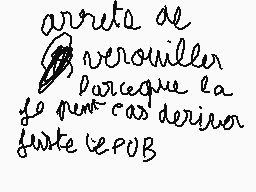 arrete de
verouiller
parceque la
je peut pas deriver
juste le PUB